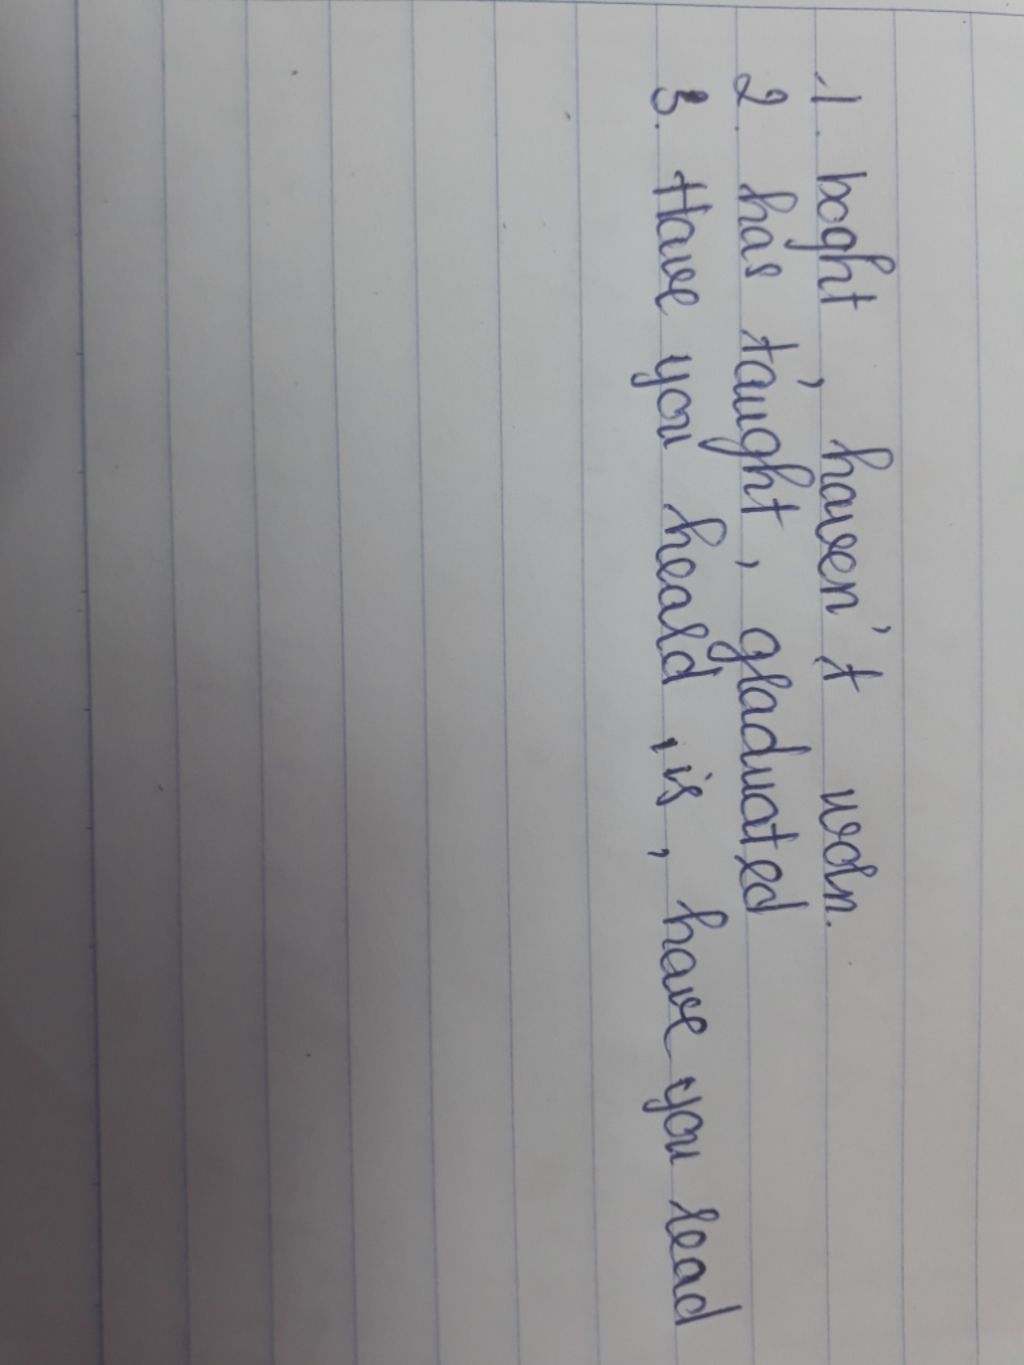 1. boght, haven't worn.
2. has taught, graduated
3. Have you heard, is, have you read